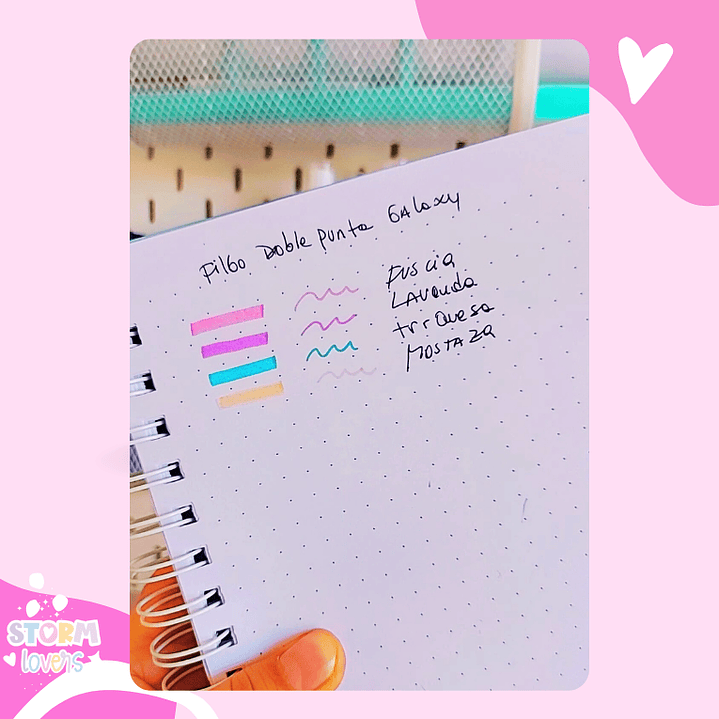 Filgo Doble punta Galaxy
Fuscia
Lavanda
Mostaza
STORM
lovers